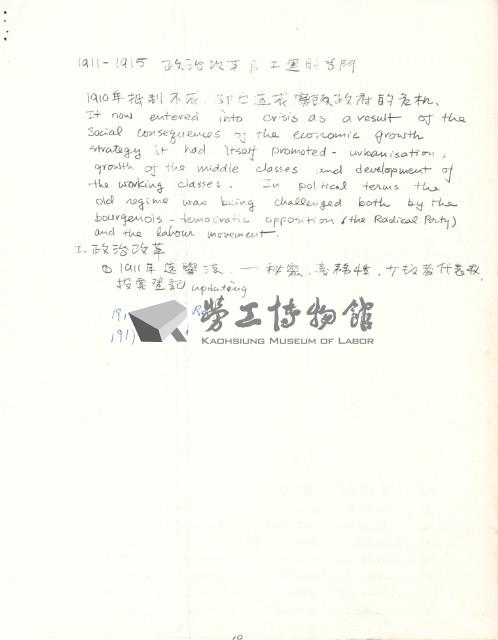 1911-1915 政治改革與工運的奮鬥
1910年抵制不成,却也造成寡頭政府的危机.
It now entered into crisis as a result of the
social consequences of the economic growth
strategy it had itself promoted - urbanisation,
growth of the middle classes and development of
the working classes. In political terms the
old regime was being challenged both by the
bourgeois-democratic opposition (the Radical Party)
and the labour movement.
I. 政治改革
① 1911年選舉法, 一秘密, 强
投票登記 updating
191
191
勞工博物館
KAOHSIUNG MUSEUM OF LABOR